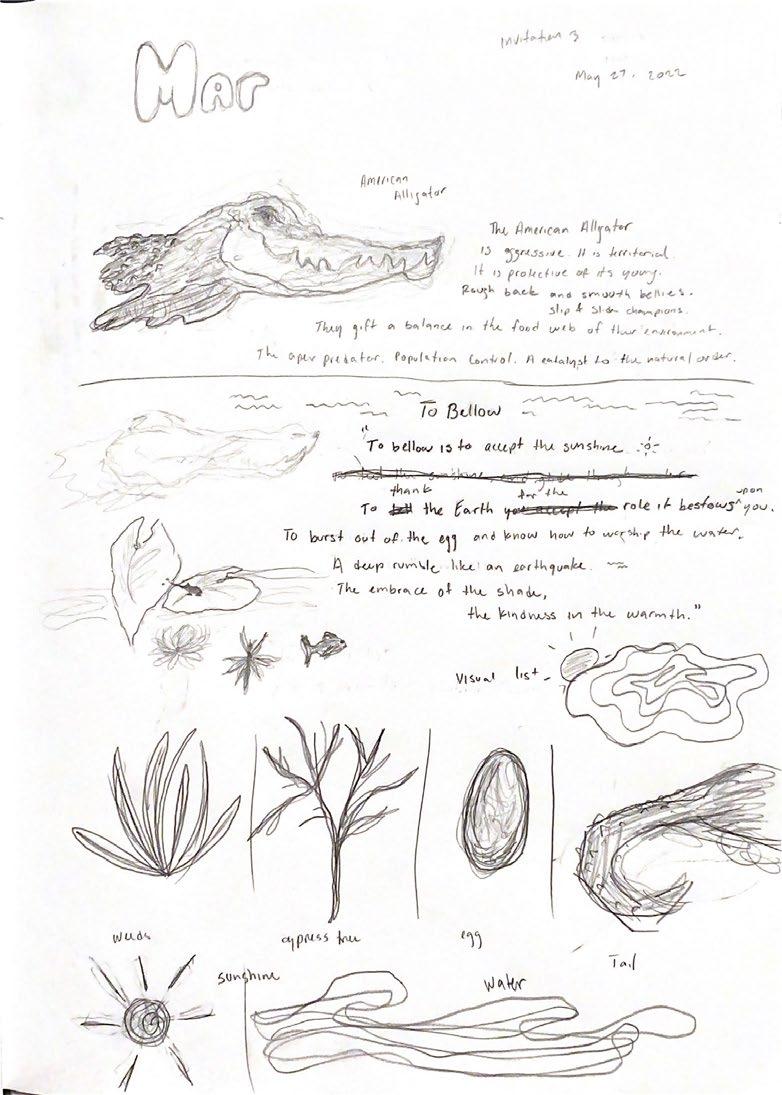 Invitation 3
May 27, 2022
Mar
American
Alligator
The American Alligator
is aggressive. It is territorial.
It is protective of its young.
Rough back and smooth bellies.
slip & slide champions.
They gift a balance in the food web of their environment.
The apex predator. Population Control. A catalyst to the natural order.
To Bellow
"To bellow is to accept the sunshine
thank for the upon
To the Earth you accept the role it bestows you.
To burst out of the egg and know how to worship the water.
A deep rumble like an earthquake.
The embrace of the shade,
the kindness in the warmth."
Visual list
weeds
cypress tree
egg
Tail
sunshine
Water